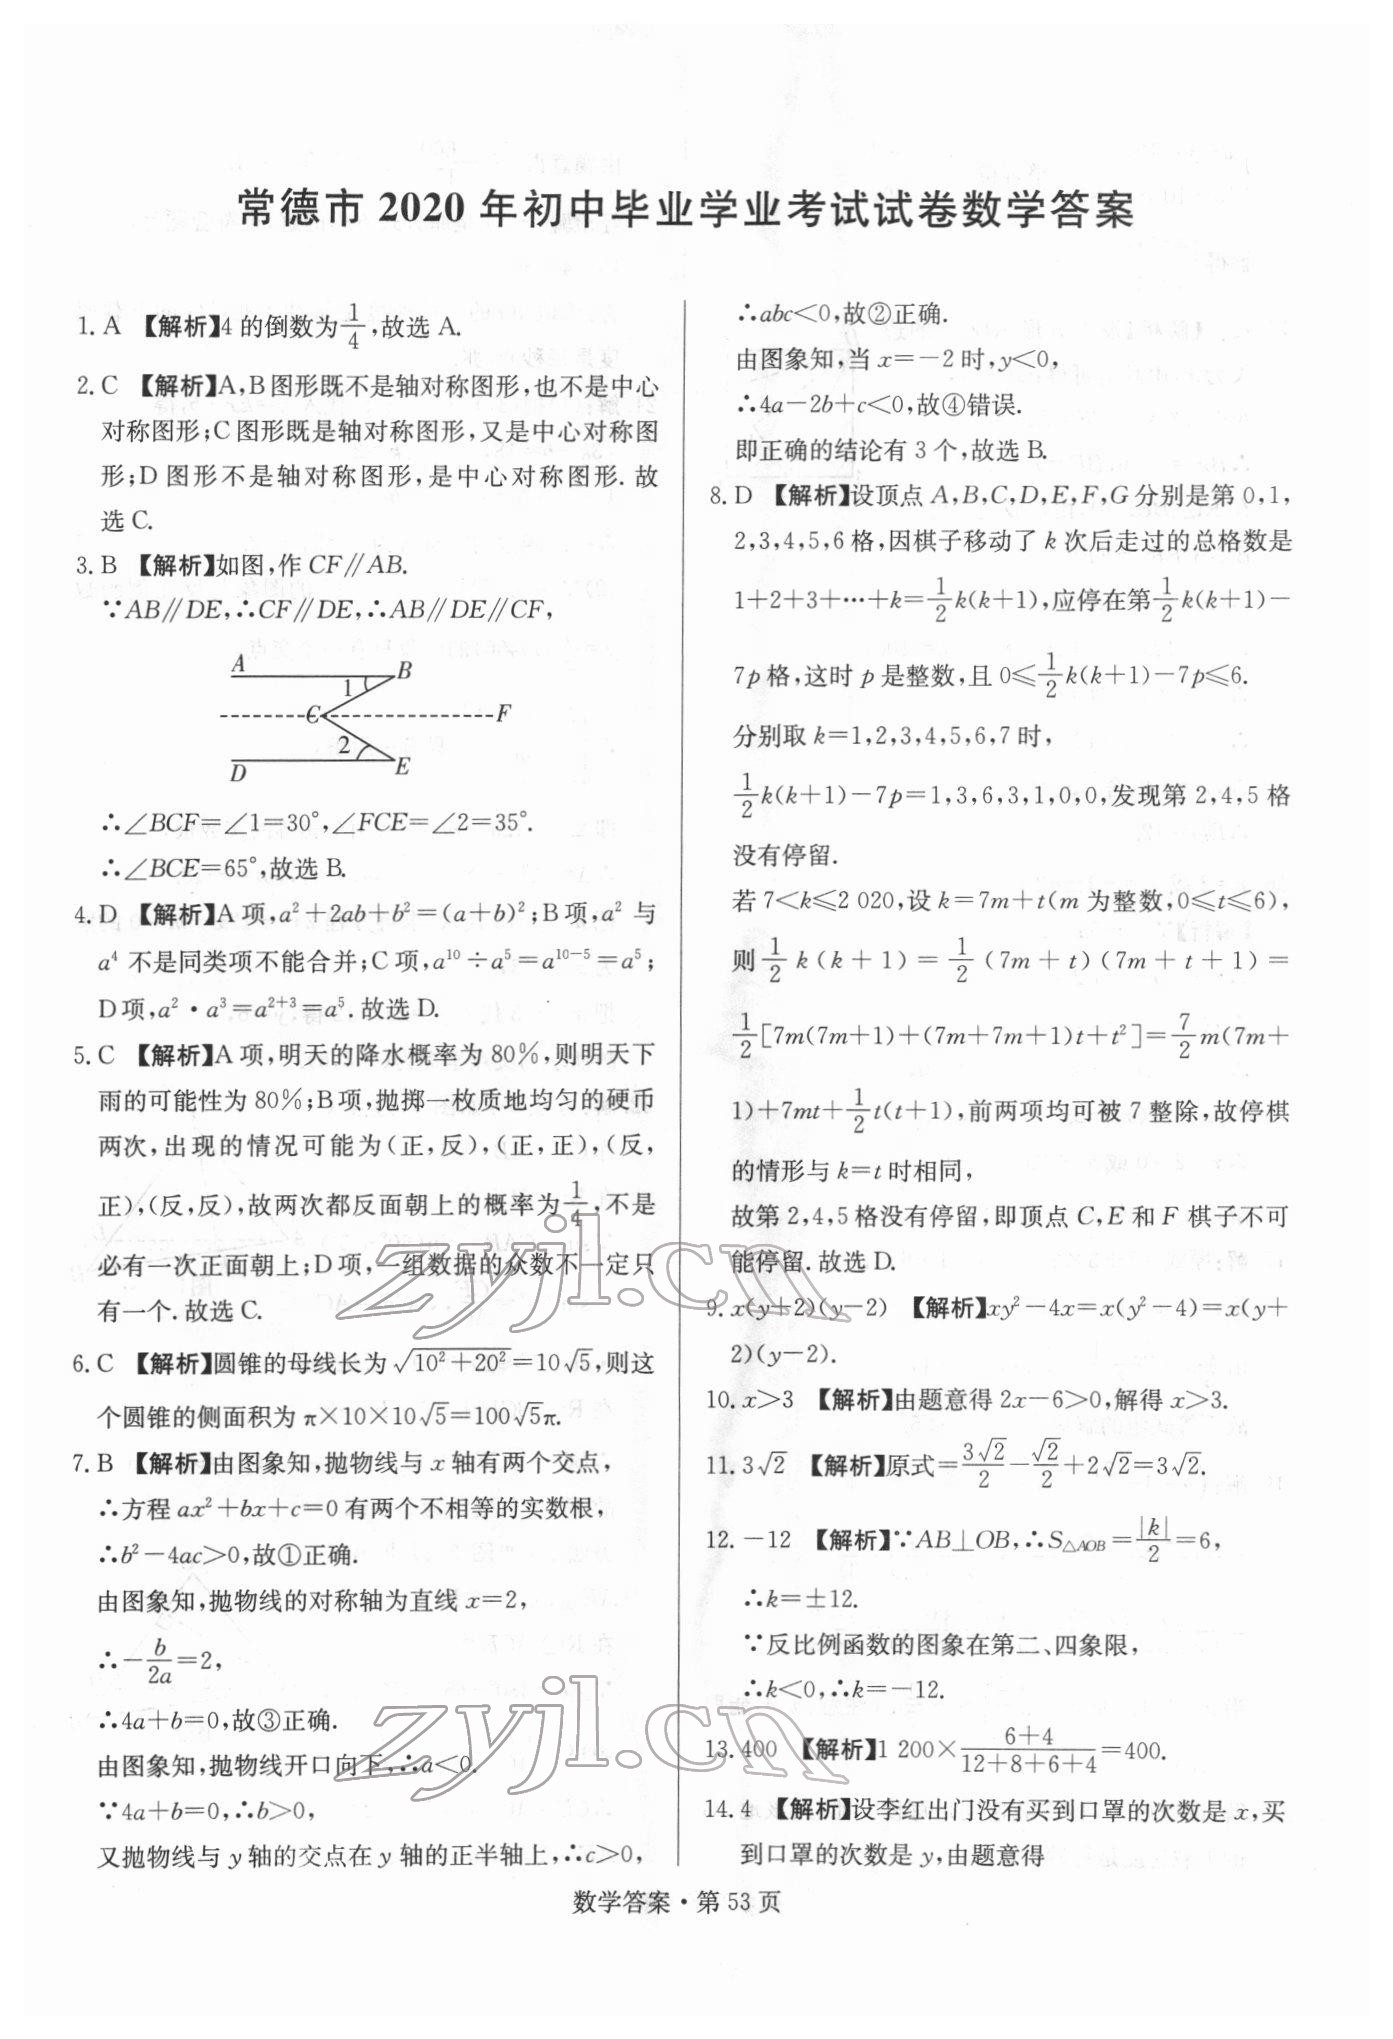 常德市 2020 年初中毕业学业考试试卷数学答案
1. A 【解析】4 的倒数为1/4,故选 A.
2. C 【解析】A,B图形既不是轴对称图形,也不是中心
对称图形;C图形既是轴对称图形,又是中心对称图
形;D 图形不是轴对称图形,是中心对称图形. 故
选 C.
3. B 【解析】如图,作 CF∥AB.
∵AB∥DE,∴CF∥DE,∴AB∥DE∥CF,
A
B
1
C
F
2
D
E
∴∠BCF=∠1=30°,∠FCE=∠2=35°.
∴∠BCE=65°,故选 B.
4. D 【解析】A 项,a²+2ab+b²=(a+b)²;B项,a² 与
a⁴ 不是同类项不能合并;C 项,a¹⁰÷a⁵=a¹⁰⁻⁵=a⁵;
D项,a²·a³=a²⁺³=a⁵.故选 D.
5. C 【解析】A 项,明天的降水概率为 80%,则明天下
雨的可能性为 80%;B项,抛掷一枚质地均匀的硬币
两次,出现的情况可能为(正,反),(正,正),(反,
正),(反,反),故两次都反面朝上的概率为1/4,不是
必有一次正面朝上;D 项,一组数据的众数不一定只
有一个.故选 C.
6. C 【解析】圆锥的母线长为√(10²+20²)=10√5,则这
个圆锥的侧面积为 π×10×10√5=100√5π.
7. B 【解析】由图象知,抛物线与 x 轴有两个交点,
∴方程 ax²+bx+c=0 有两个不相等的实数根,
∴b²-4ac>0,故①正确.
由图象知,抛物线的对称轴为直线 x=2,
∴-b/2a=2,
∴4a+b=0,故③正确.
由图象知,抛物线开口向下,∴a<0.
∵4a+b=0,∴b>0,
又抛物线与 y 轴的交点在 y 轴的正半轴上,∴c>0,
∴abc<0,故②正确.
由图象知,当 x=-2 时,y<0,
∴4a-2b+c<0,故④错误.
即正确的结论有 3 个,故选 B.
8. D 【解析】设顶点 A,B,C,D,E,F,G分别是第 0,1,
2,3,4,5,6 格,因棋子移动了 k 次后走过的总格数是
1+2+3+…+k=1/2k(k+1),应停在第1/2k(k+1)-
7p 格,这时 p 是整数,且 0≤1/2k(k+1)-7p≤6.
分别取 k=1,2,3,4,5,6,7 时,
1/2k(k+1)-7p=1,3,6,3,1,0,0,发现第 2,4,5 格
没有停留.
若 7<k≤2 020,设 k=7m+t(m 为整数,0≤t≤6),
则1/2k(k+1)=1/2(7m+t)(7m+t+1)=
1/2[7m(7m+1)+(7m+7m+1)t+t²]=7/2m(7m+
1)+7mt+1/2t(t+1),前两项均可被 7 整除,故停棋
的情形与 k=t 时相同,
故第 2,4,5格没有停留,即顶点 C,E 和 F 棋子不可
能停留.故选 D.
9. x(y+2)(y-2) 【解析】xy²-4x=x(y²-4)=x(y+
2)(y-2).
10. x>3 【解析】由题意得 2x-6>0,解得 x>3.
11. 3√2 【解析】原式=3√2/2-√2/2+2√2=3√2.
12. -12 【解析】∵AB⊥OB,∴S△AOB=|k|/2=6,
∴k=±12.
∵反比例函数的图象在第二、四象限,
∴k<0,∴k=-12.
13. 400 【解析】1 200×(6+4)/(12+8+6+4)=400.
14. 4 【解析】设李红出门没有买到口罩的次数是 x,买
到口罩的次数是 y,由题意得
数学答案·第 53 页
zyjl.cn
zyjl.cn